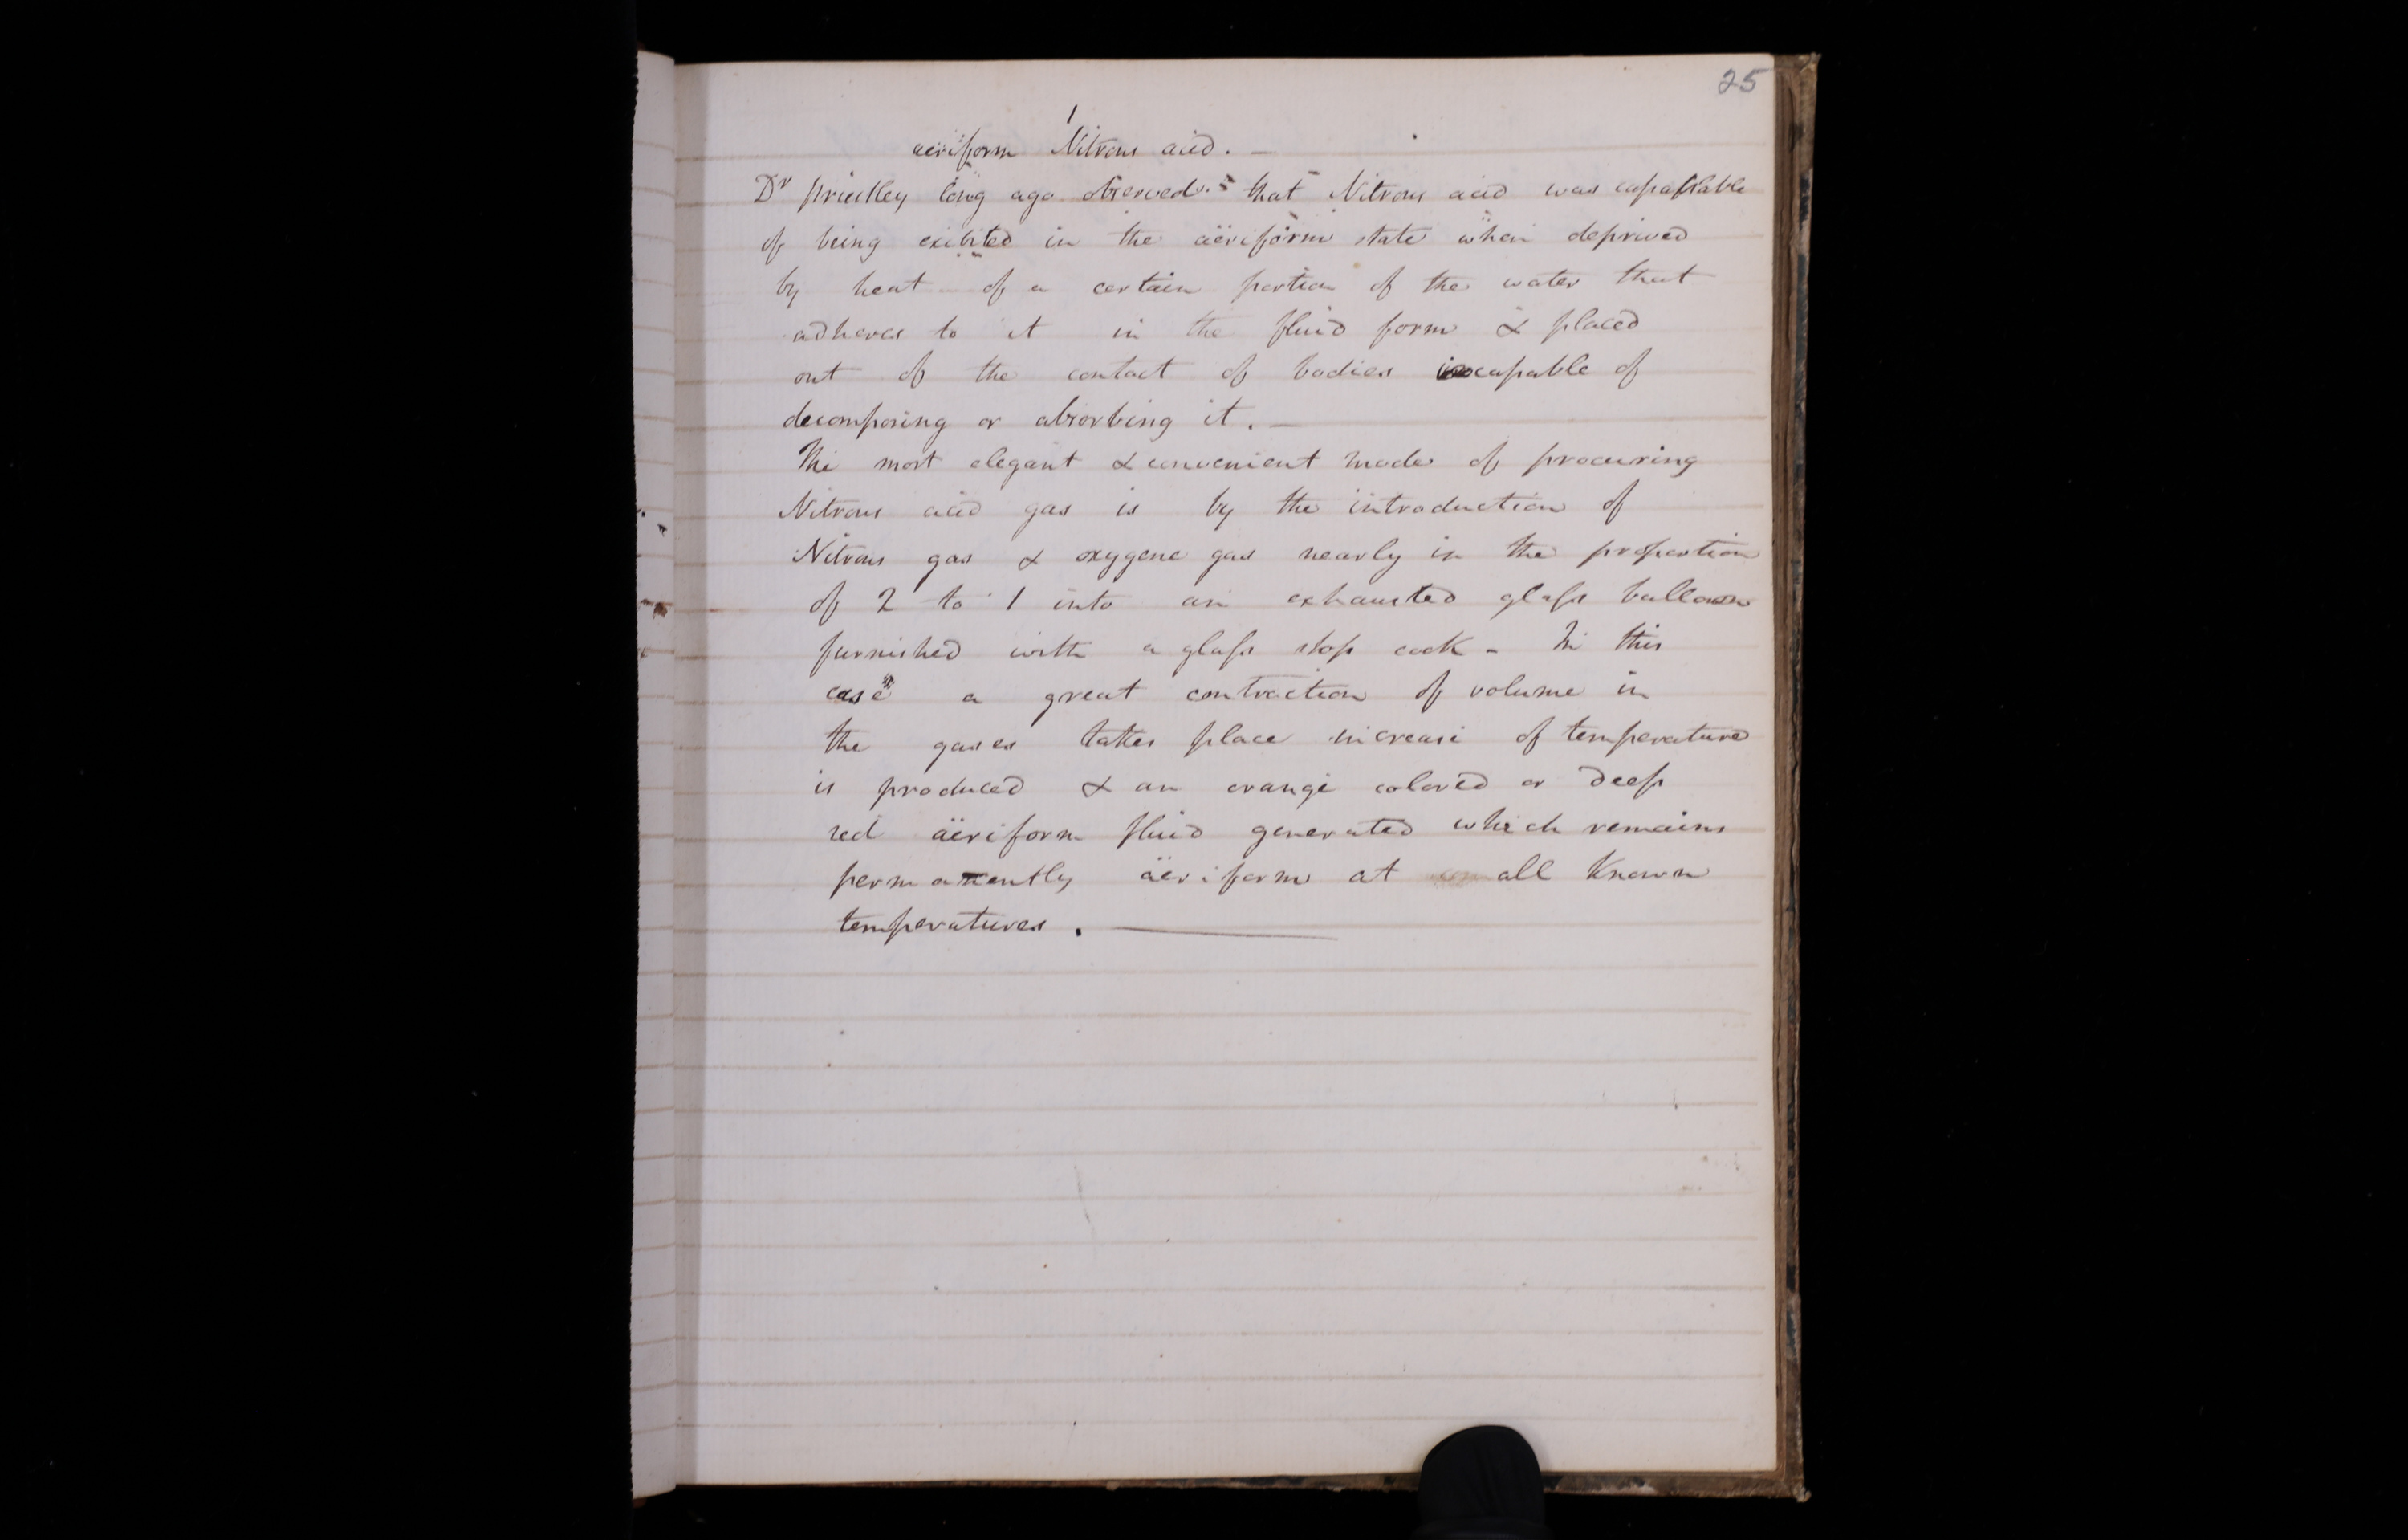 25
1
aëriform Nitrous acid. —
Dr Priestley long ago observed that Nitrous acid was capable
of being exibited in the aëriform state when deprived
by heat of a certain portion of the water that
adheres to it in the fluid form & placed
out of the contact of bodies capable of
decomposing or absorbing it. —
The most elegant & convenient mode of procuring
Nitrous acid gas is by the introduction of
Nitrous gas & oxygene gas nearly in the proportion
of 2 to 1 into an exhausted glass balloon
furnished with a glass stop cock - In this
case a great contraction of volume in
the gases takes place increase of temperature
is produced & an orange colored or deep
red aëriform fluid generated which remains
permanently aëriform at all known
temperatures. —